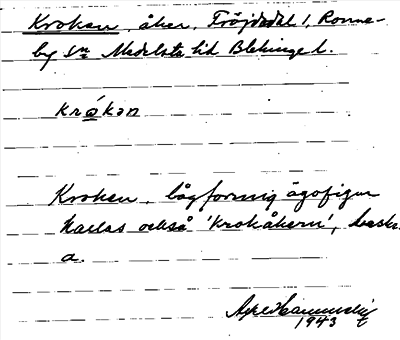 Kroken, åker, Fröjdadal 1, Ronne-
by sn Medelsta hd Blekinge l.
krókan
Kroken, bågformig ägofigur
kallas också 'krokåkern',
a.
1943